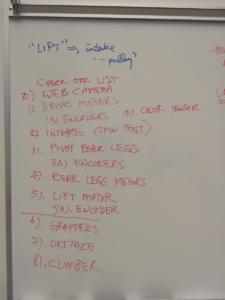 "LIFT" => intake
- pulley
CHECK OFF LIST
0) WEB CAMERA
1) DRIVE MOTORS
1A) ENCODERS 1B) COLOR SENSOR
2) INTAKE (SPIN TEST)
3) PIVOT REAR LEGS
3A) ENCODERS
4) REAR LEGS MOTORS
5) LIFT MOTOR
5A) ENCODER
6) GRAPPERS
7) OUTTAKE
8) CLIMBER